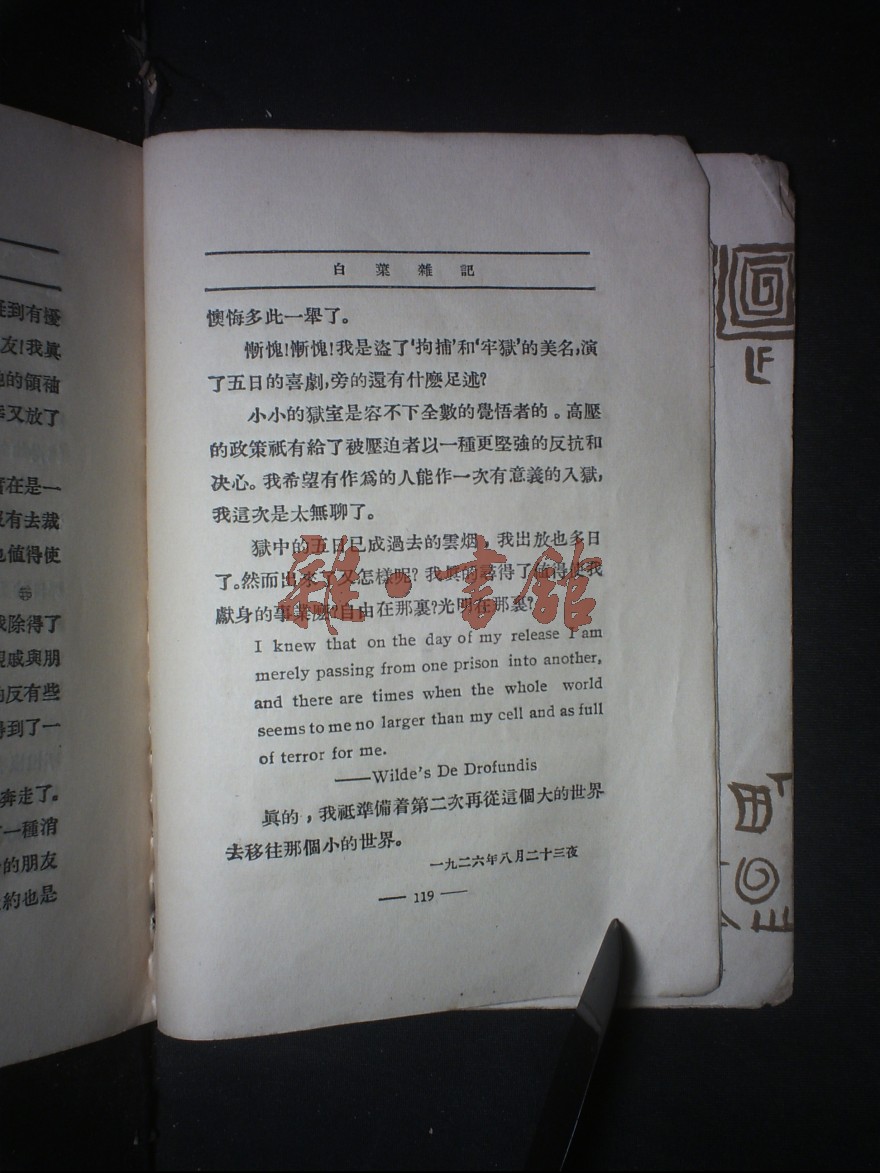 走到有擾
友!我眞
他的領袖
又放了
在是一
沒有去裁
也值得使
我除得了
親戚與朋
的反有些
得到了一
奔走了。
一種消
的朋友
約也是
白菜雜記
懊悔多此一舉了。
慚愧!慚愧!我是盜了‘拘捕’和‘牢獄’的美名,演
了五日的喜劇,旁的還有什麼足述?
小小的獄室是容不下全數的覺悟者的。高壓
的政策祇有給了被壓迫者以一種更堅強的反抗和
决心。我希望有作爲的人能作一次有意義的入獄,
我這次是太無聊了。
獄中的五日已成過去的雲烟,我出放也多日
了。然而出來了又怎樣呢?我眞的落得了值得使我
獻身的事業麼?自由在那裏?光明在那裏?
I knew that on the day of my release I am
merely passing from one prison into another,
and there are times when the whole world
seems to me no larger than my cell and as full
of terror for me.
——Wilde's De Drofundis
眞的,我祗準備着第二次再從這個大的世界
去移往那個小的世界。
一九二六年八月二十三夜
— 119 —
雜·書館
LF